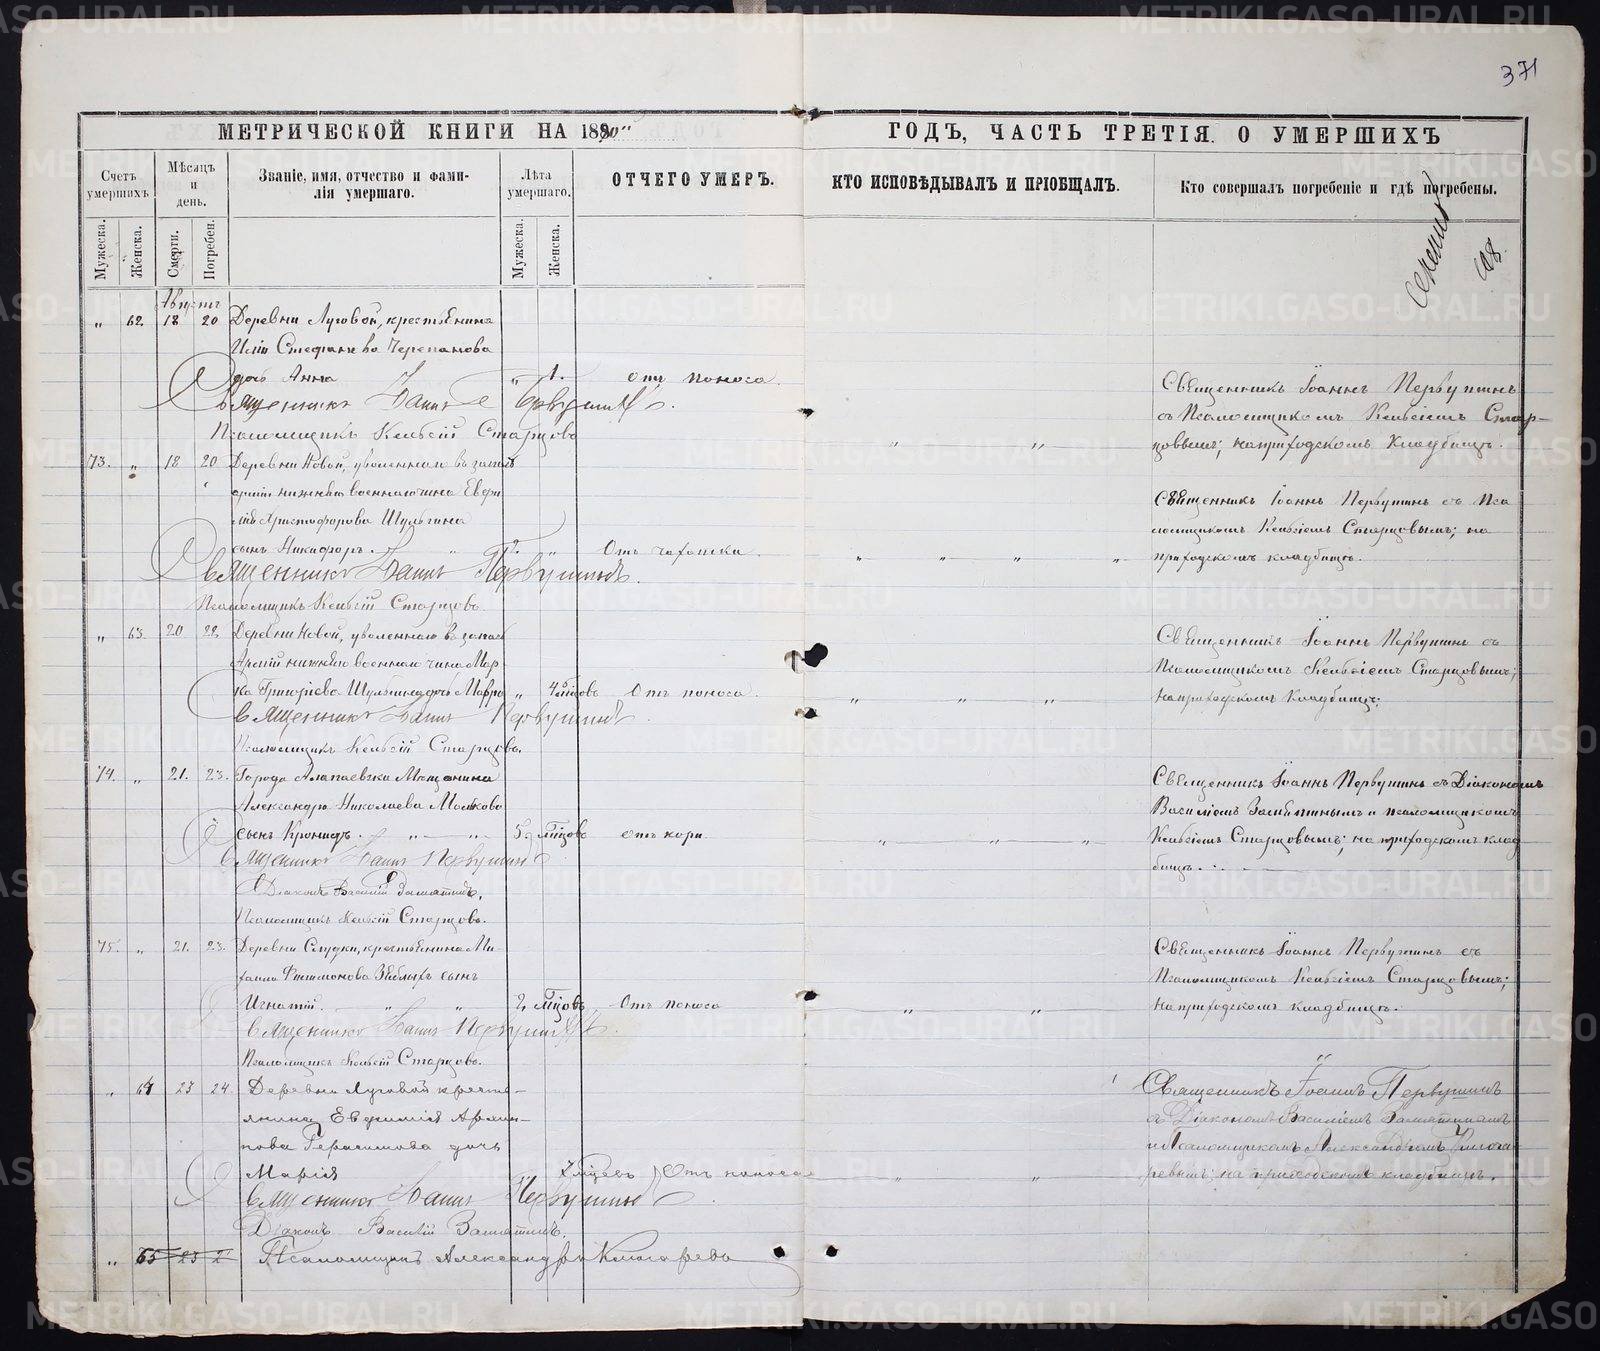 371
МЕТРИЧЕСКОЙ КНИГИ НА 1890" ГОДЪ, ЧАСТЬ ТРЕТІЯ. О УМЕРШИХЪ
Счетъ умершихъ.
Мѣсяцъ и день.
Званіе, имя, отчество и фами-
лія умершаго.
Лѣта умершаго.
ОТЧЕГО УМЕРЪ.
КТО ИСПОВѢДЫВАЛЪ И ПРІОБЩАЛЪ.
Кто совершалъ погребеніе и гдѣ погребены.
Мужеска. Женска. Смерти. Погребен. Мужеска. Женска.
Августъ
„ 62. 18 20 Деревни Луговой, крестьянина
Иліи Стефанова Черепанова
дочь Анна „ 1. отъ поноса.
Священникъ Іоаннъ Первушинъ.
Псаломщикъ Старцовъ
Священникъ Іоаннъ Первушинъ
съ Псаломщикомъ Стар-
цовымъ; на приходскомъ кладбищѣ.
73. „ 18 20 Деревни Новой, уволеннаго въ запасъ
арміи нижняго военнаго чина Евфи
мія Христофорова Шульгина
сынъ Никифоръ. 2. „ Отъ чахотки.
Священникъ Іоаннъ Первушинъ.
Псаломщикъ Старцовъ
Священникъ Іоаннъ Первушинъ съ Пса
ломщикомъ Старцовымъ; на
приходскомъ кладбищѣ.
„ 63. 20 22. Деревни Новой, уволеннаго въ запасъ
Арміи нижняго военнаго чина Мар
ка Григорьева Шульгина дочь Мавра „ мѣсяцовъ Отъ поноса.
Священникъ Іоаннъ Первушинъ
Псаломщикъ Старцовъ.
Священникъ Іоаннъ Первушинъ съ
Псаломщикомъ Старцовымъ;
на приходскомъ кладбищѣ.
74. „ 21. 23. Города Алапаевска Мѣщанина
Александра Николаева
сынъ Кронидъ. 5 мѣсяцовъ отъ кори
Священникъ Іоаннъ Первушинъ
Діаконъ Василій Замятинъ.
Псаломщикъ Старцовъ.
Священникъ Іоаннъ Первушинъ съ Діакономъ
Василіемъ Замятинымъ и псаломщикомъ
Старцовымъ; на приходскомъ клад
бищѣ.
75. „ 21. 23. Деревни Слудки, крестьянина Ми
хаила Филимонова Зяблыхъ сынъ
Игнатій. „ „ 2 мѣсяцовъ Отъ поноса
Священникъ Іоаннъ Первушинъ.
Псаломщикъ Старцовъ.
Священникъ Іоаннъ Первушинъ съ
Псаломщикомъ Старцовымъ;
на приходскомъ кладбищѣ.
„ 64 23 24. Деревни Луговой кресть-
янина Евфимія Архип-
пова Герасимова дочь
Марія 7 мѣсяцевъ Отъ поноса
Священникъ Іоаннъ Первушинъ
Діаконъ Василій Замятинъ.
Псаломщикъ Александръ
Священникъ Іоаннъ Первушинъ
съ Діакономъ Василіемъ Замятинымъ
и Псаломщикомъ Александромъ
на приходскомъ кладбищѣ.
„ 65 23 2
METRIKI.GASO-URAL.RU